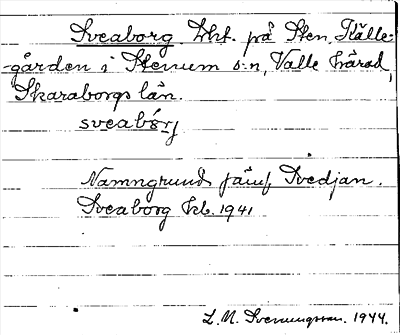 Sveaborg. Lht. på Sten, Källe-
gården i Stenum s:n, Valle härad,
Skaraborgs län.
sveabórj
Namngrund jämf. Svedjan.
Sveaborg kb. 1941
L. M. Svenungsson. 1944.